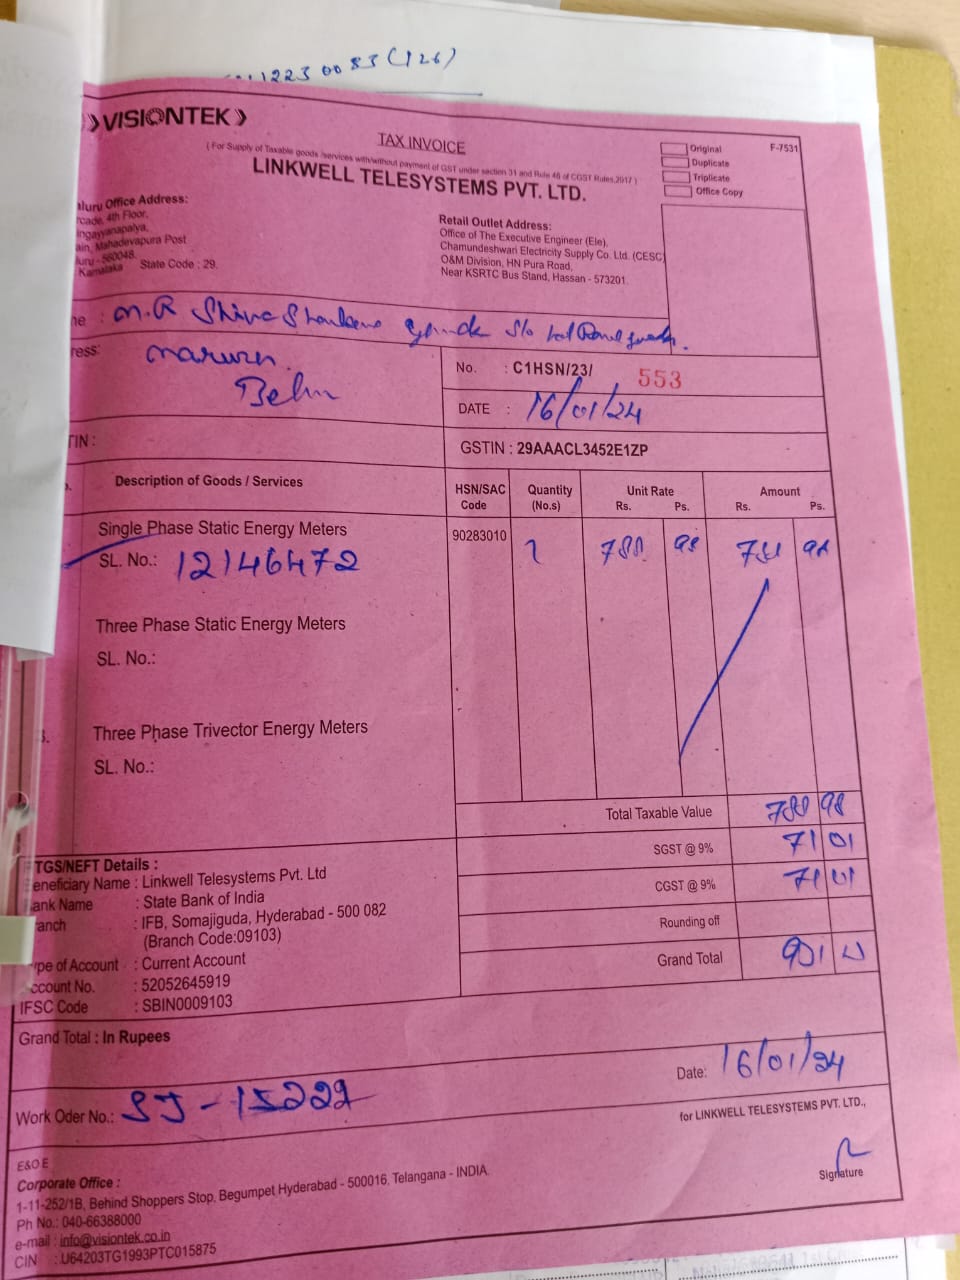 1223 0083 (126)
VISIONTEK
TAX INVOICE
( For Supply of Taxable goods /services with/without payment of GST under section 31 and Rule 46 of CGST Rules,2017 )
LINKWELL TELESYSTEMS PVT. LTD.
Original
Duplicate
Triplicate
Office Copy
F-7531
aluru Office Address:
rcade, 4th Floor,
ngayyanapalya,
ain, Mahadevapura Post
uru - 560048.
Karnataka State Code : 29.
Retail Outlet Address:
Office of The Executive Engineer (Ele),
Chamundeshwari Electricity Supply Co. Ltd. (CESC
O&M Division, HN Pura Road,
Near KSRTC Bus Stand, Hassan - 573201.
me : M.R Shiva S/o
ress:
No. : C1HSN/23/ 553
DATE : 16/01/24
TIN :
GSTIN : 29AAACL3452E1ZP
Description of Goods / Services
HSN/SAC Code
Quantity (No.s)
Unit Rate
Rs. Ps.
Amount
Rs. Ps.
Single Phase Static Energy Meters
SL. No.: 12146472
90283010 1 788 98 788 98
Three Phase Static Energy Meters
SL. No.:
3. Three Phase Trivector Energy Meters
SL. No.:
Total Taxable Value 788 98
SGST @ 9% 71 01
CGST @ 9% 71 01
Rounding off
Grand Total
TGS/NEFT Details :
eneficiary Name : Linkwell Telesystems Pvt. Ltd
ank Name : State Bank of India
anch : IFB, Somajiguda, Hyderabad - 500 082
(Branch Code:09103)
ype of Account : Current Account
ccount No. : 52052645919
IFSC Code : SBIN0009103
Grand Total : In Rupees
Work Oder No.: SJ - 15222
Date: 16/01/24
for LINKWELL TELESYSTEMS PVT. LTD.,
Signature
E&O E
Corporate Office :
1-11-252/1B, Behind Shoppers Stop, Begumpet Hyderabad - 500016, Telangana - INDIA
Ph No.: 040-66388000
e-mail : info@visiontek.co.in
CIN : U64203TG1993PTC015875